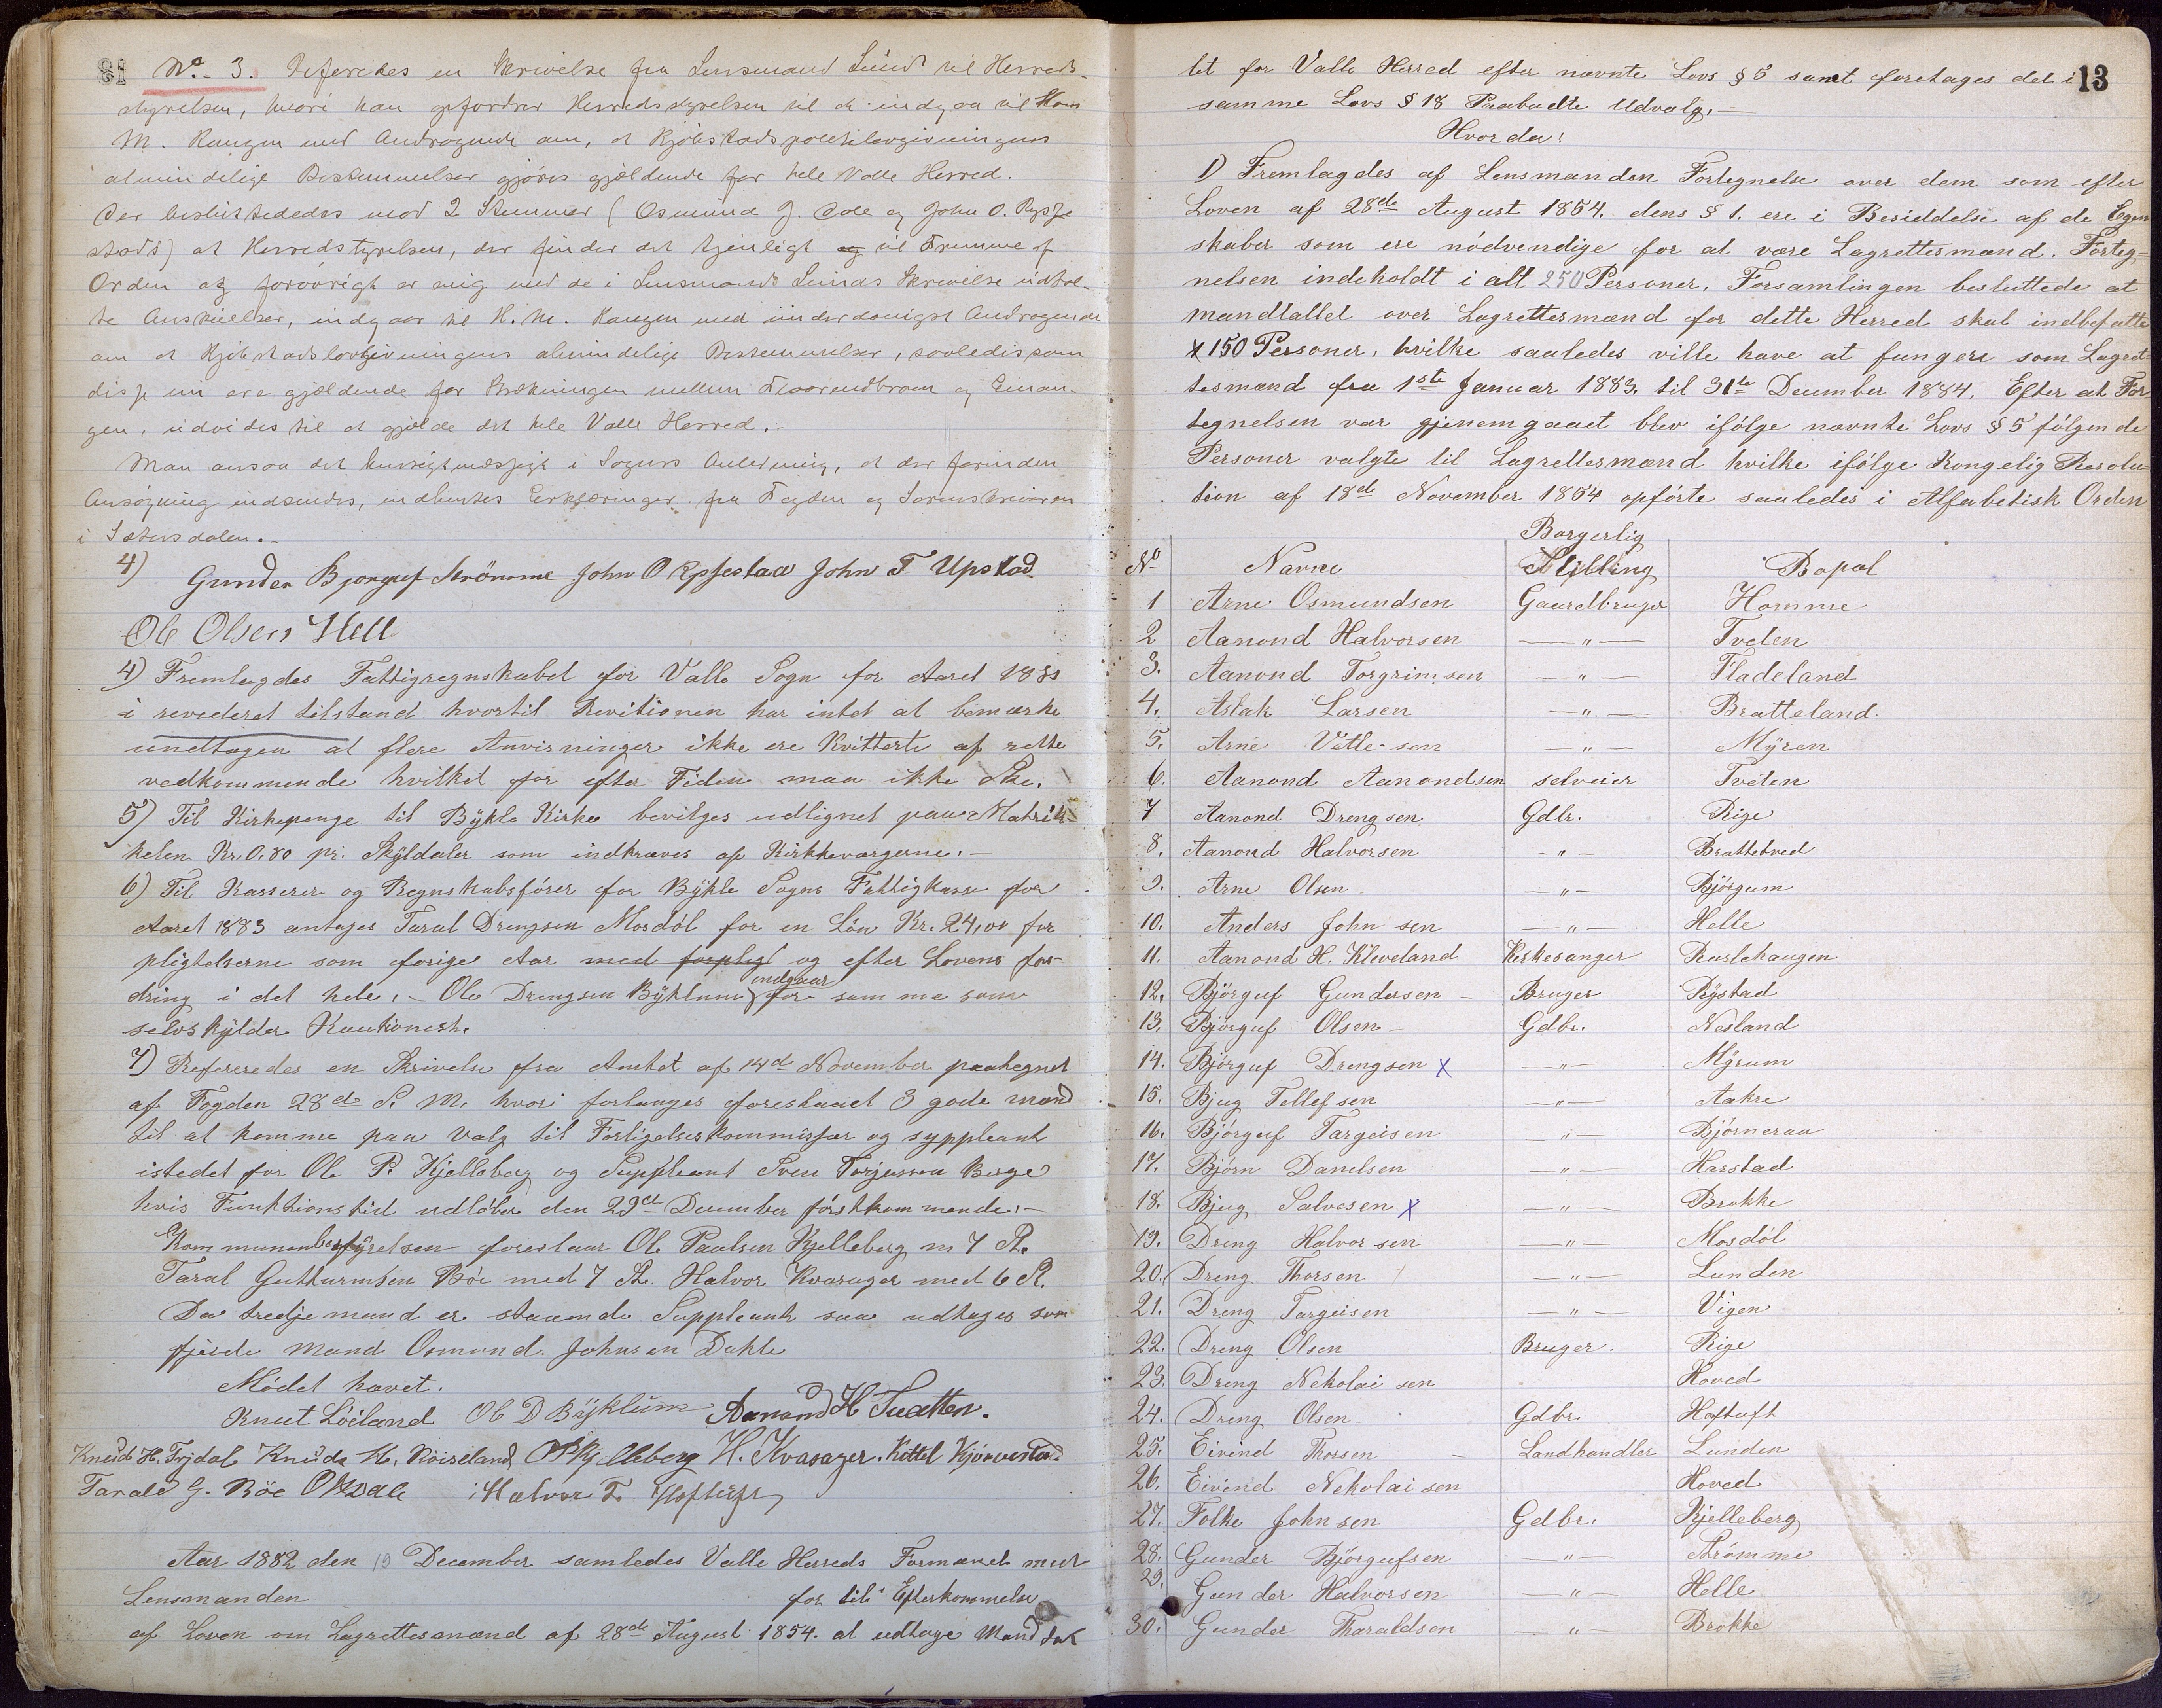 No. 3. Refereredes en Skrivelse fra Lensmand Lund til Herreds-
styrelsen, hvori han opfordrer Herredsstyrelsen til at indgaa til Hans
M. Kongen med Andragende om, at Kjöbstadspolitilovgivningens
almindelige Bestemmelser gjöres gjældende for hele Valle Herred.
Der besluttededes mod 2 Stemmer (Osmund J. Dale og John O. Rysje
stad) at Herredstyrelsen, der finder det tjenligt og til Fremme af
Orden og forövrigt er enig med de i Lensmand Lunds Skrivelse udtal-
te Anskuelser, indgaar til H. M. Kongen med underdanigst Andragende
om at Kjöbstadslovgivningens almindelige Bestemmelser, saaledes som
disse nu ere gjældende for Strækningen mellem og
gen, udvides til at gjælde det hele Valle Herred.
Man ansaa det hensigtmæssigt i Sagens Anledning, at der forinden
Ansögning indsendes, indhentes Erklæringer fra Fogden og Sorenskriveren
i Sætersdalen.-
4) Gunder Bjorguf Strömme John O Rysjestad John T Upstad
Ole Olsen Hell
4) Fremlagdes Fattigregnskabet for Valle Sogn for Aaret 1881
i revederet tilstand hvortil Revitionen har intet at bemærke
undtagen at flere Anvisninger ikke ere Kvitterte af rette
vedkommende hvilket for efter Tiden maa ikke Ske.
5) Til Kirkepenge til Bÿkle Kirke bevilges udlignet paa Matrik-
kelen Kr. 0,80 pr. Skÿldaler som indkræves af Kirkkeværgerne.-
6) Til Kasserer og Regnskabsförer for Bÿkle Sogns Fattigkasse for
Aaret 1883 antages Taral Drengsen Mosdöl for en Lön Kr. 24,00 for
pligtelserne som forige Aar med forpleg og efter Lovens for-
dring i det hele.- Ole Drengsen Bÿklum indgaar for samme som
selvskÿlder Kautionist.
7) Refereredes en Skrivelse fra Amtet af 14de November paategnet
af Fogden 28de S. M. hvori forlanges foreslaaet 3 gode mænd
til at komme paa Valg til Forligelseskommisær og syppleant
istedet for Ole P. Kjelleberg og Suppleant Sven Torjussen Berge
hvis Funktionstid udløber den 29de December förstkommende.-
Kommunenbestyrelsen foreslaar Ole Paulsen Kjelleberg m 7 St.
Taral Guttormsen Böe med 7 St. Halvor Kvasager med 6 St.
Da tredje mand er staaende Suppleant saa udtages som
fjerde Mand Osmund Johnsen Dahle
Mödet hævet.
Knut Löiland Ole D Bÿklum Aanund H Tvatten.
Knud H. Trjdal Knud K. Röiseland OP Kjelleberg H. Kvasager. Kittel Kjörvestad
Tarald G. Böe O Dale Halvor T. Hoftuft
Aar 1882 den 19 December samledes Valle Herreds Formænd med
Lensmanden for til Efterkommelse
af Loven om Lagrettesmænd af 28de August 1854. at udtage Mandtal
13
let for Valle Herred efter nævnte Lovs § 5 samt foretages det i
samme Lovs § 18 Paabudte Udvalg.-
Hvor da:
1) Fremlagdes af Lensmanden Fortegnelse over dem som efter
Loven af 28de August 1854. dens § 1. ere i Besiddelse af de Egen
skaber som ere nödvendige for at være Lagrettesmænd. Forteg=
nelsen indeholdt i alt 250 Personer. Forsamlingen besluttede at
mandtallet over Lagrettesmænd for dette Herred skal indbefatte
x 150 Personer, hvilke saaledes ville have at fungere som Lagret
tesmænd fra 1ste Januar 1883. til 31te December 1884. Efter at For
tegnelsen var gjenemgaaet blev ifölge nævnte Lovs § 5 fölgende
Personer valgte til Lagrettesmænd hvilke ifölge Kongelig Resolu-
tion af 18de November 1854 opförte saaledes i Alfabetisk Orden
No Navne Borgerlig Stilling Bopæl
1 Arne Osmundsen Gaardbruger Homme
2 Aanond Halvorsen — " — Tveten
3. Aanond Torgrimsen — " — Fladeland
4. Aslak Larsen — " — Bratteland.
5. Arne Vetle-sen — " — Mÿren
6. Aanond Aanondsen selveier Tveten
7 Aanond Drengsen Gdbr. Rige
8. Aanond Halvorsen - " - Brattetved
9. Arne Olsen — " — Björgum
10. Anders Johnsen — " — Helle
11. Aanond H. Kleveland Kirkesanger Rustehaugen
12. Björguf Gundersen - Bruger Rÿstad
13. Bjorguf Olsen - Gdbr. Nesland
14. Björguf Drengsen x — " — Mÿrum
15. Bjug Tellefsen — " — Aakre
16. Björguf Targeisen — " — Björneraa
17. Bjørn Danelsen — " — Harstad
18. Bjug Salvesen x — " — Brokke
19. Dreng Halvorsen — " — Mosdöl
20. Dreng Thorsen — " — Lunden
21. Dreng Targeisen — " — Vigen
22. Dreng Olsen Bruger. Rige
23. Dreng Nekolaisen Hoved
24. Dreng Olsen Gdbr. Hoftuft
25. Eivind Thorsen - Landhandler Lunden
26. Eivind Nekolaisen Hoved
27. Folke Johnsen Gdbr. Kjelleberg
28. Gunder Björgufsen — " — Strömme
29. Gunder Halvorsen — " — Helle
30. Gunder Tharaldsen — " — Brokke